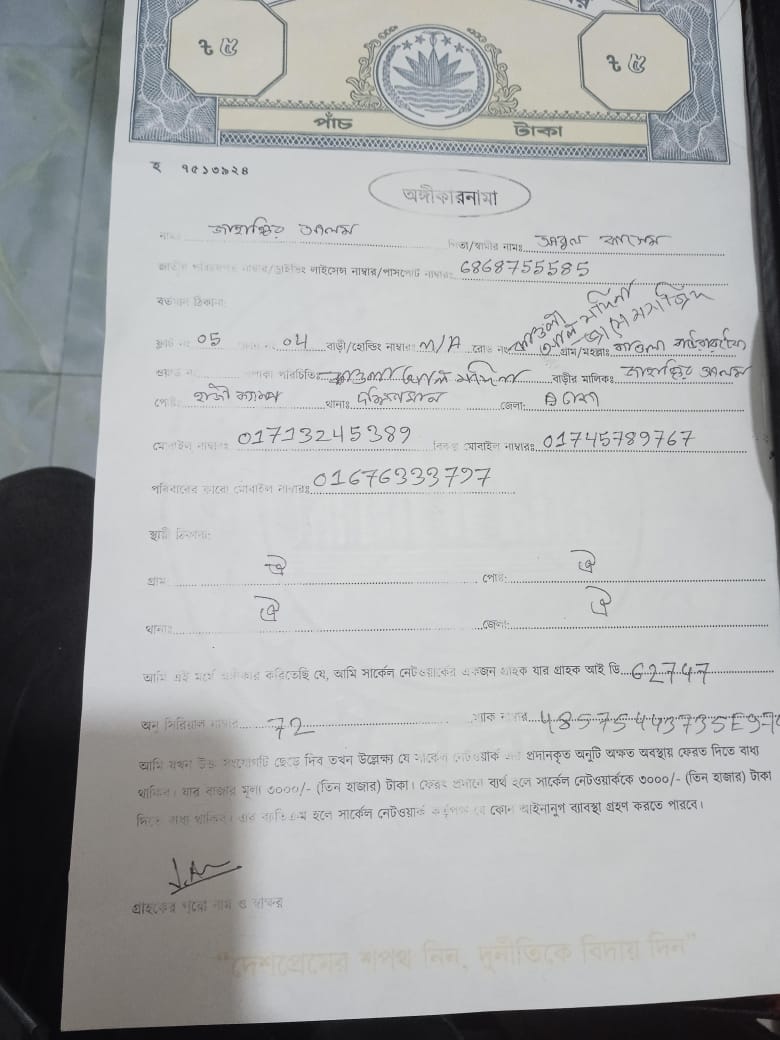 ৳ ৫
৳ ৫
পাঁচ টাকা
ই ৭৫১৩৯২৪
অঙ্গীকারনামা
নামঃ জাহাঙ্গির আলম পিতা/স্বামীর নামঃ আবুল কাসেম
জাতীয় পরিচয়পত্র নাম্বার/ড্রাইভিং লাইসেন্স নাম্বার/পাসপোর্ট নাম্বারঃ 6868755585
বর্তমান ঠিকানা:
05 04 বাড়ী/হোল্ডিং নাম্বারঃ N/A রোড নং জামে মসজিদ গ্রাম/মহল্লাঃ কাওলা
বাড়ীর মালিকঃ জাহাঙ্গির আলম
পোষ্টঃ হাজী ক্যাম্প থানাঃ দক্ষিণখান জেলা: ঢাকা
মোবাইল নাম্বারঃ 01713245389 বিকল্প মোবাইল নাম্বারঃ 01745789767
পরিবারের কারো মোবাইল নাম্বারঃ 01676333797
স্থায়ী ঠিকানা:
গ্রাম ঐ পোষ্ট: ঐ
থানাঃ ঐ জেলা: ঐ
আমি এই মর্মে অঙ্গীকার করিতেছি যে, আমি সার্কেল নেটওয়ার্কের একজন গ্রাহক যার গ্রাহক আইডি 62747
অনু সিরিয়াল নাম্বার 72 ম্যাক নাম্বার 48575443735E
আমি যখন উক্ত সংযোগটি ছেড়ে দিব তখন উল্লেক্ষ্য যে সার্কেল নেটওয়ার্ক এর প্রদানকৃত অনুটি অক্ষত অবস্থায় ফেরত দিতে বাধ্য
থাকিব। যার বাজার মূল্য ৩০০০/- (তিন হাজার) টাকা। ফেরৎ প্রদানে ব্যর্থ হলে সার্কেল নেটওয়ার্ককে ৩০০০/- (তিন হাজার) টাকা
দিতে বাধ্য থাকিব। এর ব্যতিক্রম হলে সার্কেল নেটওয়ার্ক কর্তৃপক্ষ যে কোন আইনানুগ ব্যাবস্থা গ্রহণ করতে পারবে।
গ্রাহকের পুরো নাম ও স্বাক্ষর
“দেশপ্রেমের শপথ নিন, দুর্নীতিকে বিদায় দিন”